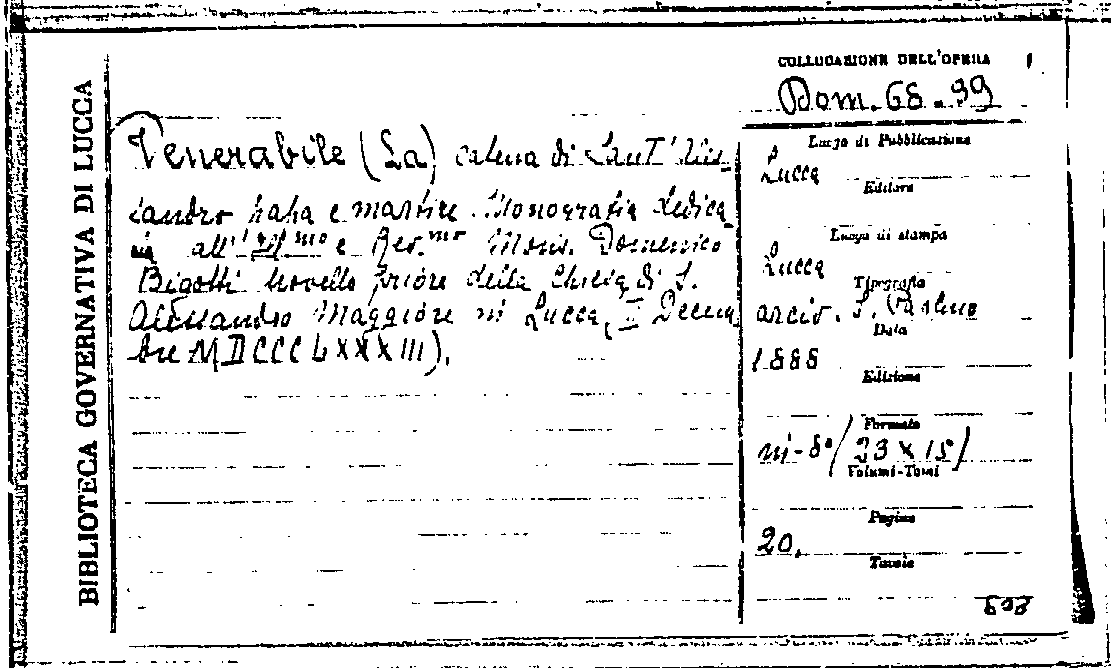 BIBLIOTECA GOVERNATIVA DI LUCCA
COLLOCAZIONE DELL'OPERA
Dom. 68.99
Venerabile (La) catena di Sant'Ales-
sandro papa e martire. Monografia dedica
ta all' Ill.mo e Rev.mo Mons. Domenico
Bigotti novello priore della Chiesa di S.
Alessandro Maggiore in Lucca, II Decem
bre MDCCCLXXXIII).
Luogo di Pubblicazione
Lucca
Editore
Luogo di stampa
Lucca
Tipografia
arciv. S. Paolino
Data
1888
Edizione
Formato
in-8° (23 x 15)
Volumi-Tomi
Pagine
20.
Tavole